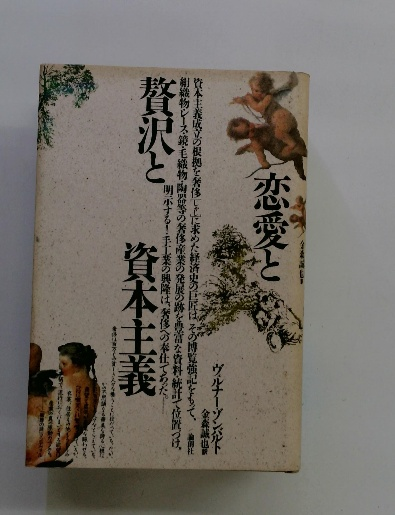 恋愛と
贅沢と
資本主義
金森誠也訳
ヴェルナー・ゾンバルト
金森誠也訳
論創社
資本主義成立の根拠を奢侈に求めた経済史の巨匠は、その博覧強記をもって、
絹織物・レース・鏡・毛織物・陶器等の奢侈産業の発展の跡を豊富な資料・統計で位置づけ、
明示する!手工業の興隆は、奢侈への奉仕であった